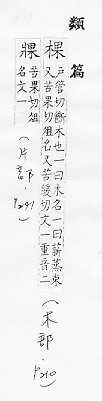 類篇
棵 戶管切斷木也一曰木名一曰薪蒸束
又苦果切俎名又苦緩切文一重音二
(木部·P210)
䠹 苦果切俎
名文一
(片部·P241)